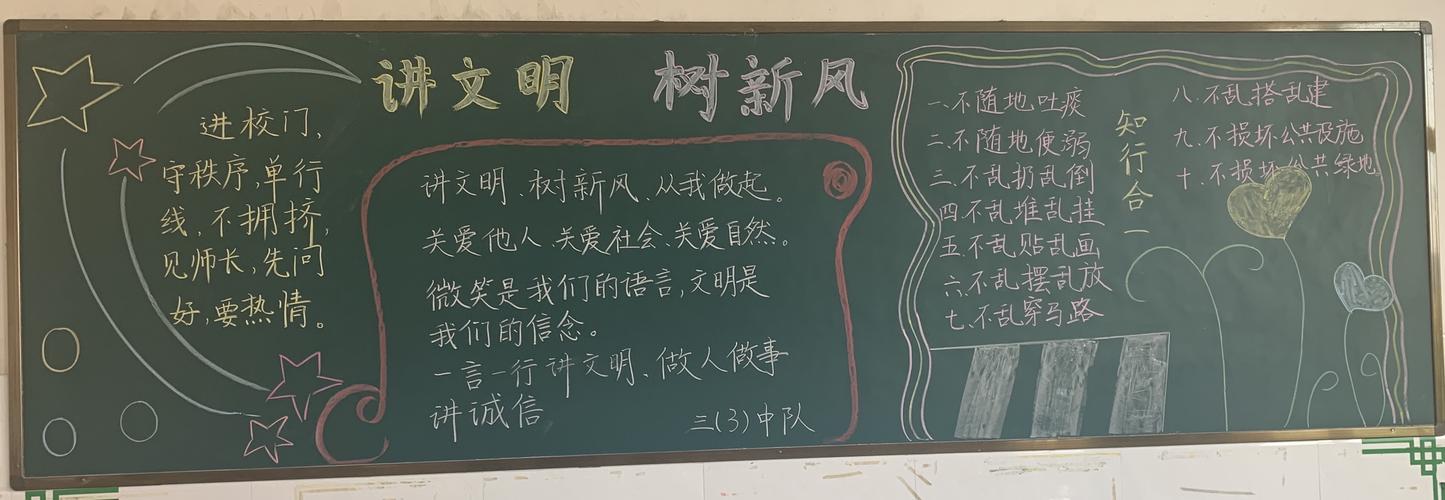 讲文明 树新风
进校门,
守秩序,单行
线,不拥挤,
见师长,先问
好,要热情。
讲文明、树新风、从我做起。
关爱他人、关爱社会、关爱自然。
微笑是我们的语言,文明是
我们的信念。
一言一行讲文明、做人做事
讲诚信
三(3)中队
一、不随地吐痰
二、不随地便溺
三、不乱扔乱倒
四、不乱堆乱挂
五、不乱贴乱画
六、不乱摆乱放
七、不乱穿马路
知行合一
八、不乱搭乱建
九、不损坏公共设施
十、不损坏公共绿地